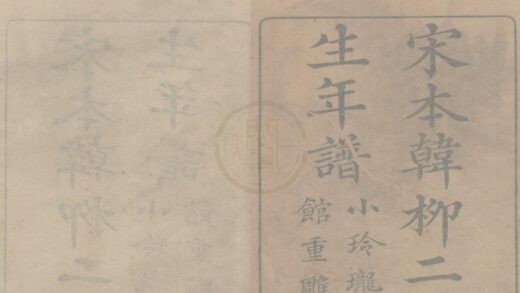 宋本韓柳二
生年譜
小玲瓏
館重雕